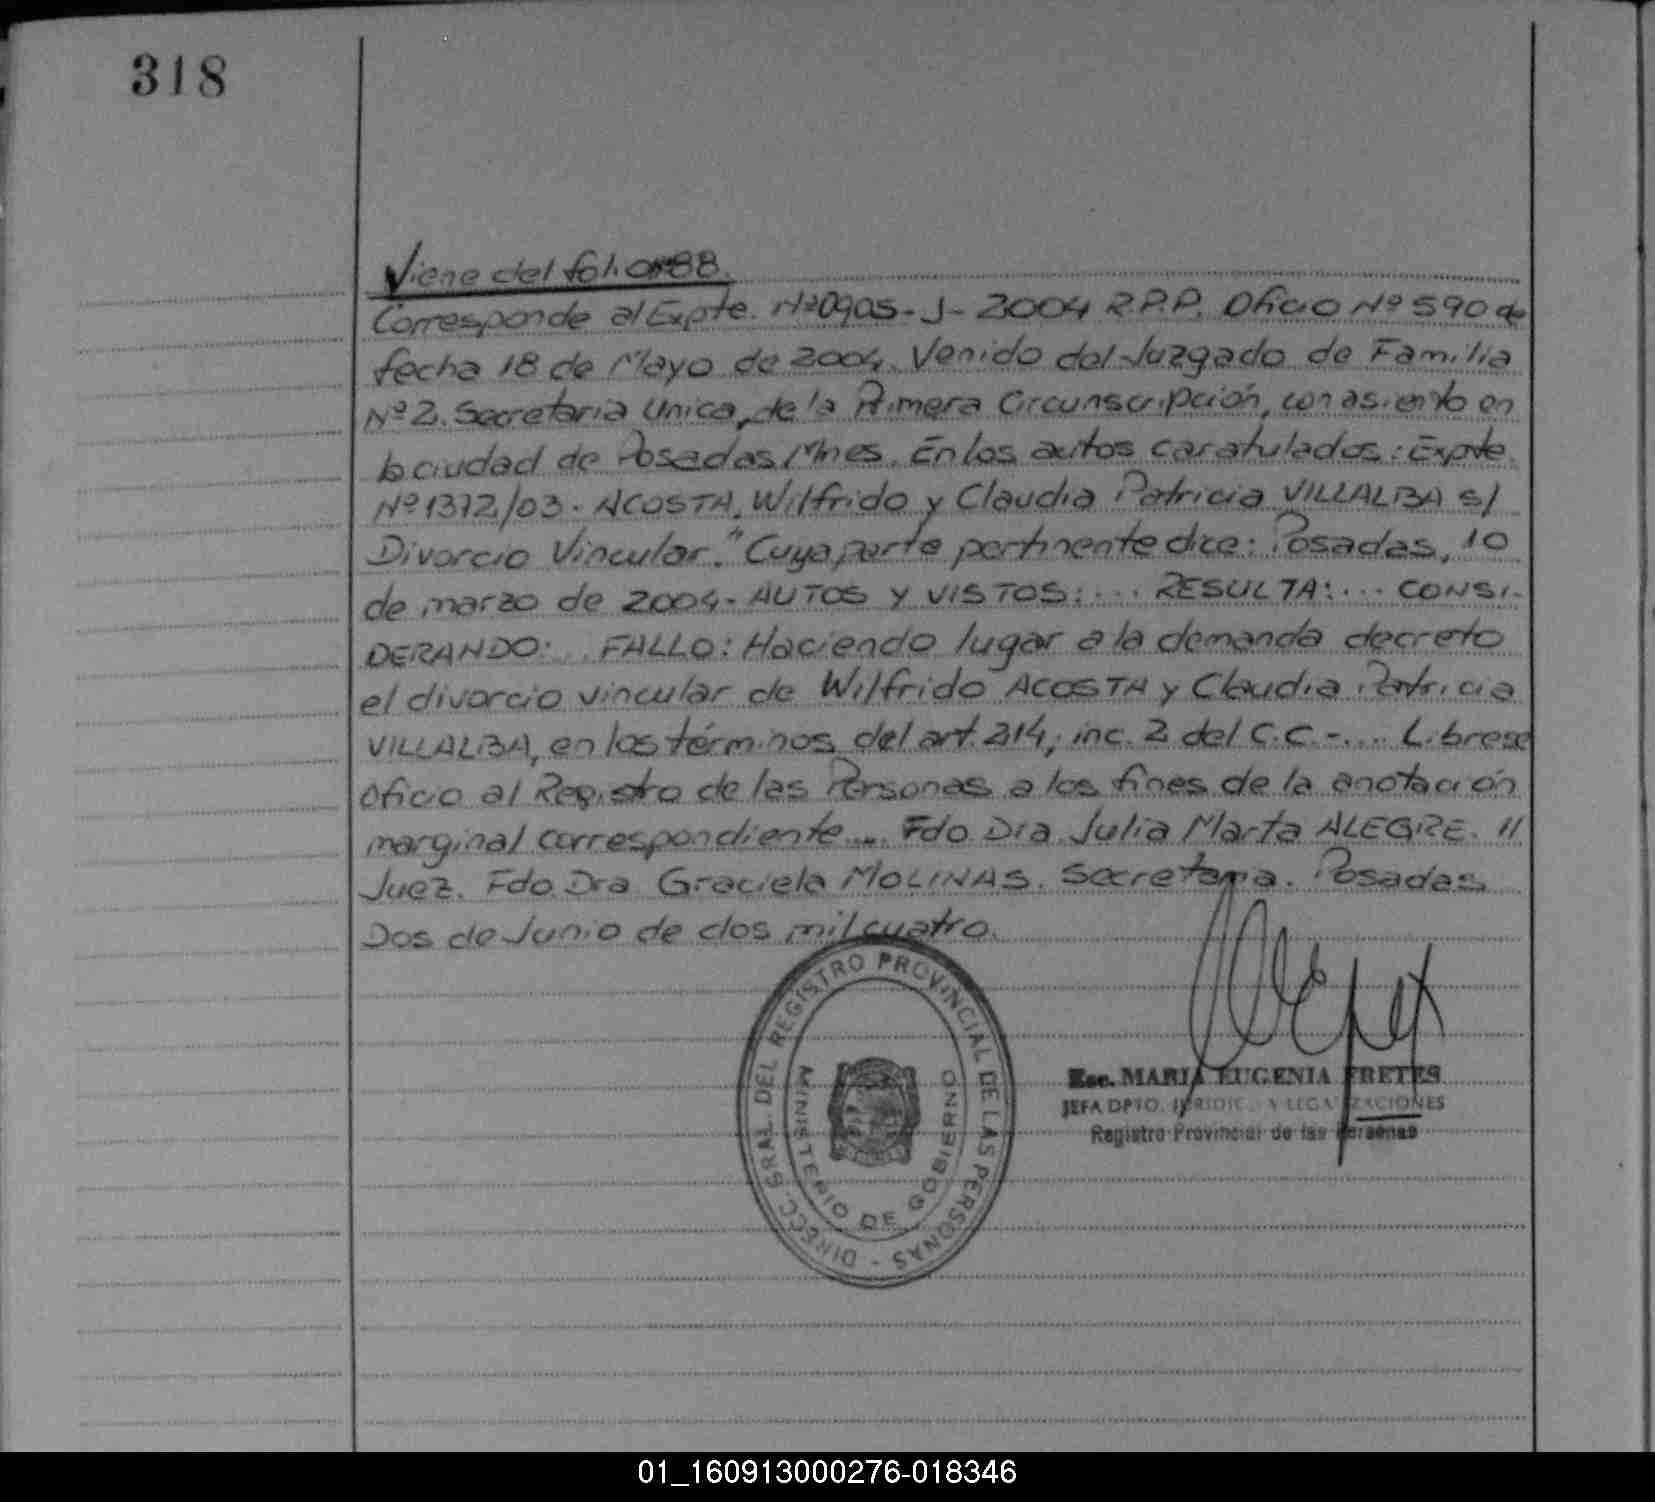 318
Viene del folio 88.
Corresponde al Expte. Nº 0905-J-2004 R.P.P. Oficio Nº 590 de
fecha 18 de Mayo de 2004. Venido del Juzgado de Familia
Nº 2. Secretaria Unica, de la Primera Circunscripción, con asiento en
la ciudad de Posadas Mnes. En los autos caratulados: Expte.
Nº 1372/03. ACOSTA, Wilfrido y Claudia Patricia VILLALBA s/
Divorcio Vincular." Cuya parte pertinente dice: Posadas, 10
de marzo de 2004.- AUTOS Y VISTOS:... RESULTA:... CONSI-
DERANDO:... FALLO: Haciendo lugar a la demanda decreto
el divorcio vincular de Wilfrido ACOSTA y Claudia Patricia
VILLALBA, en los términos del art. 214, inc. 2 del C.C.-.... Librese
oficio al Registro de las Personas a los fines de la anotación
marginal correspondiente... Fdo. Dra. Julia Marta ALEGRE. //
Juez. Fdo. Dra Graciela MOLINAS. Secretaria. Posadas
Dos de Junio de dos mil cuatro.
DIRECC. GRAL. DEL REGISTRO PROVINCIAL DE LAS PERSONAS -
MINISTERIO DE GOBIERNO
Esc. MARIA EUGENIA FRETES
JEFA DPTO. JURIDIC. Y LEGALIZACIONES
Registro Provincial de las Personas
01_160913000276-018346